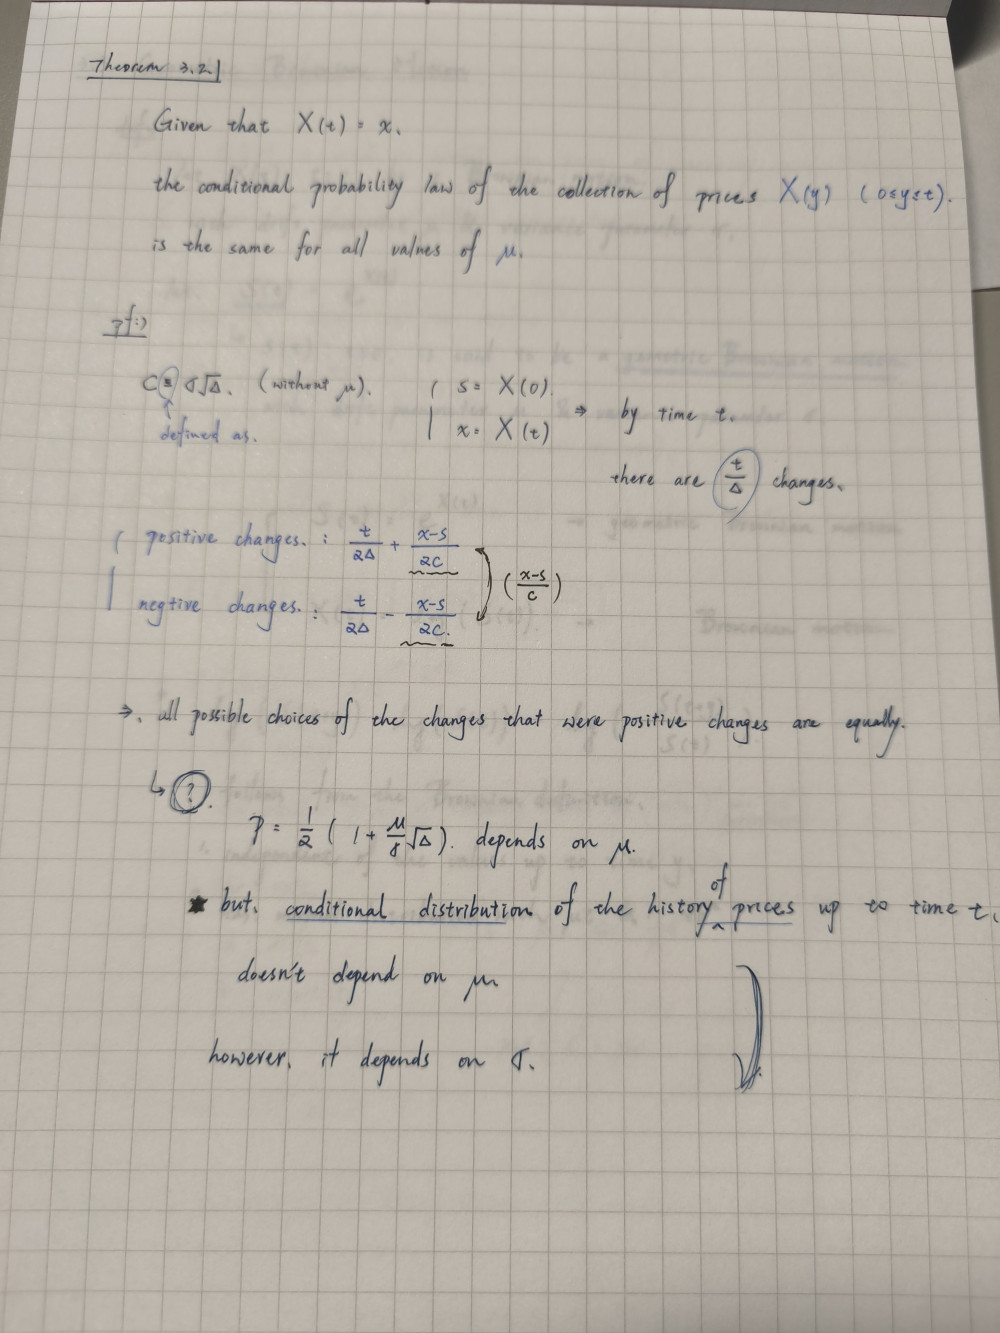 Theorem 3.2.1
Given that X(t) = x,
the conditional probability law of the collection of prices X(y) (0≤y≤t).
is the same for all values of μ.
pf:)
C ≡ σ√Δ. (without μ).
defined as.
s = X(0).
x = X(t)
⇒ by time t.
there are t/Δ changes.
positive changes. : t/2Δ + x-s/2C
negtive changes. : t/2Δ - x-s/2C.
(x-s/C)
⇒. all possible choices of the changes that were positive changes are equally.
↳ ?.
P = 1/2 ( 1 + μ/σ √Δ ). depends on μ.
★ but. conditional distribution of the history of prices up to time t.
doesn't depend on μ
however, it depends on σ.